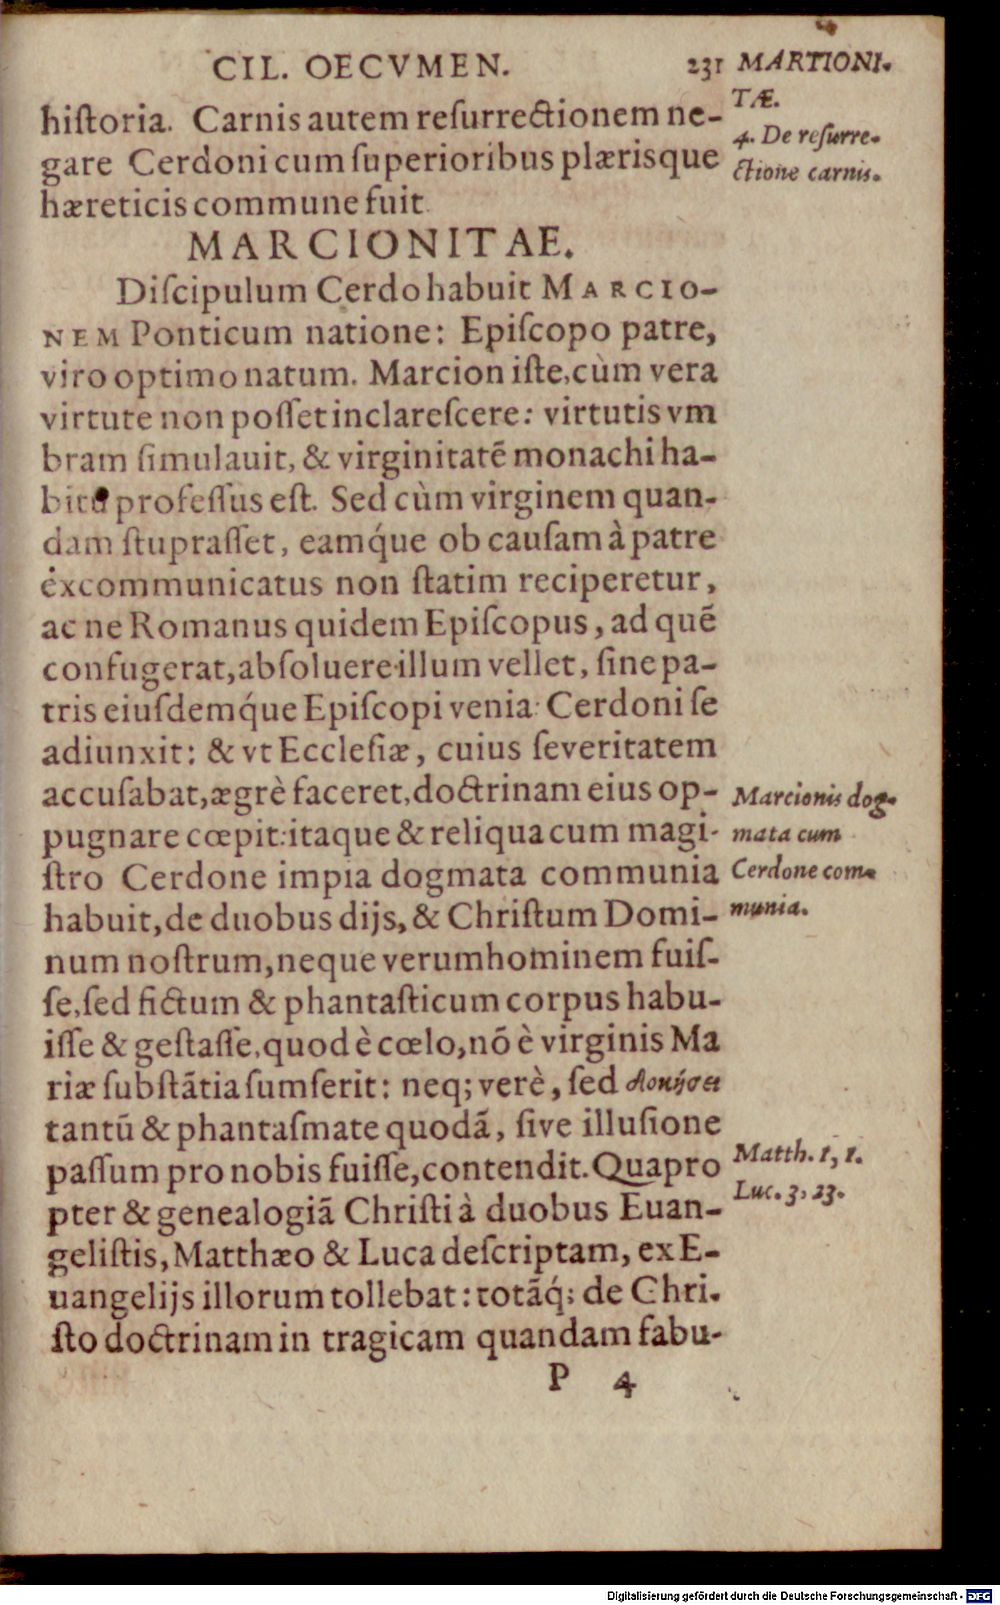 CIL. OECVMEN. 231
MARTIONI.
TÆ.
4. De reſurre-
ctione carnis.
hiſtoria. Carnis autem reſurrectionem ne-
gare Cerdoni cum ſuperioribus plærisque
hæreticis commune fuit
MARCIONITAE.
Diſcipulum Cerdo habuit MARCIO-
NEM Ponticum natione: Epiſcopo patre,
viro optimo natum. Marcion iſte, cùm vera
virtute non poſſet inclareſcere: virtutis vm
bram ſimulauit, & virginitatē monachi ha-
bitu profeſſus eſt. Sed cùm virginem quan-
dam ſtupraſſet, eamq́ue ob cauſam à patre
excommunicatus non ſtatim reciperetur,
ac ne Romanus quidem Epiſcopus, ad quē
confugerat, abſoluere illum vellet, ſine pa-
tris eiuſdemq́ue Epiſcopi venia: Cerdoni ſe
adiunxit: & vt Eccleſiæ, cuius ſeveritatem
accuſabat, ægrè faceret, doctrinam eius op-
pugnare cœpit: itaque & reliqua cum magi-
ſtro Cerdone impia dogmata communia
habuit, de duobus dijs, & Chriſtum Domi-
num noſtrum, neque verum hominem fuiſ-
ſe, ſed fictum & phantaſticum corpus habu-
iſſe & geſtaſſe, quod è cœlo, nō è virginis Ma
riæ ſubſtātia ſumſerit: neq; verè, ſed δοκήσει
tantū & phantaſmate quodā, ſive illuſione
paſſum pro nobis fuiſſe, contendit. Quapro
pter & genealogiā Chriſti à duobus Euan-
geliſtis, Matthæo & Luca deſcriptam, ex E-
uangelijs illorum tollebat: totāq́; de Chri-
ſto doctrinam in tragicam quandam fabu-
Marcionis dog-
mata cum
Cerdone com-
munia.
Matth. 1, 1.
Luc. 3, 23.
P 4
Digitalisierung gefördert durch die Deutsche Forschungsgemeinschaft - DFG